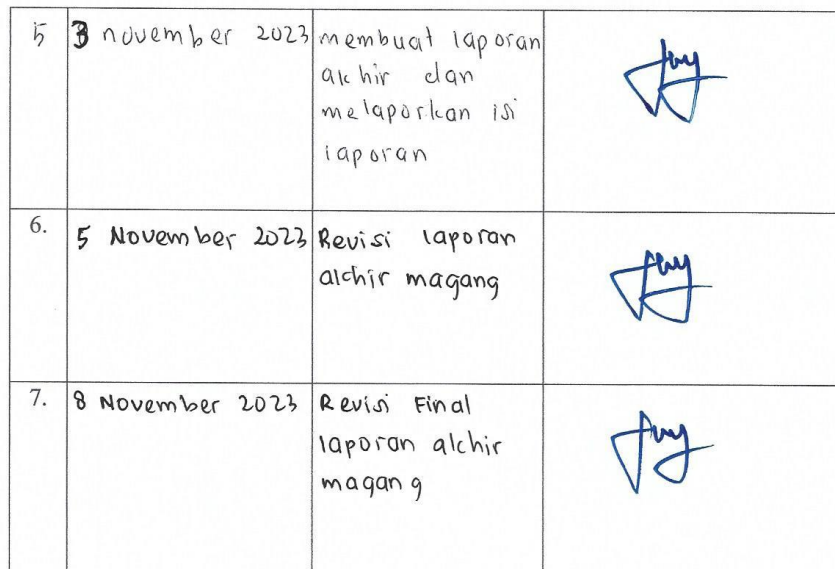 5 3 november 2023 membuat laporan
akhir dan
melaporkan isi
laporan
6. 5 November 2023 Revisi laporan
akhir magang
7. 8 November 2023 Revisi Final
laporan akhir
magang